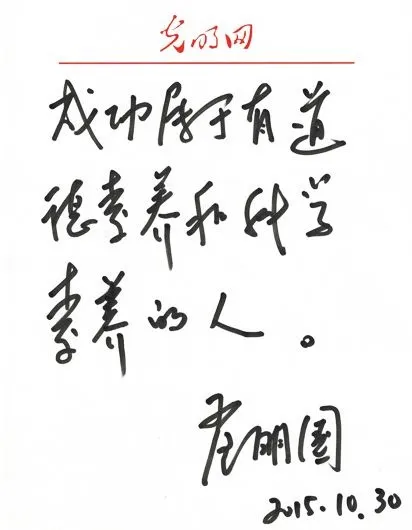 光明网
成功属于有道
德素养和科学
素养的人。
崔明国
2015.10.30